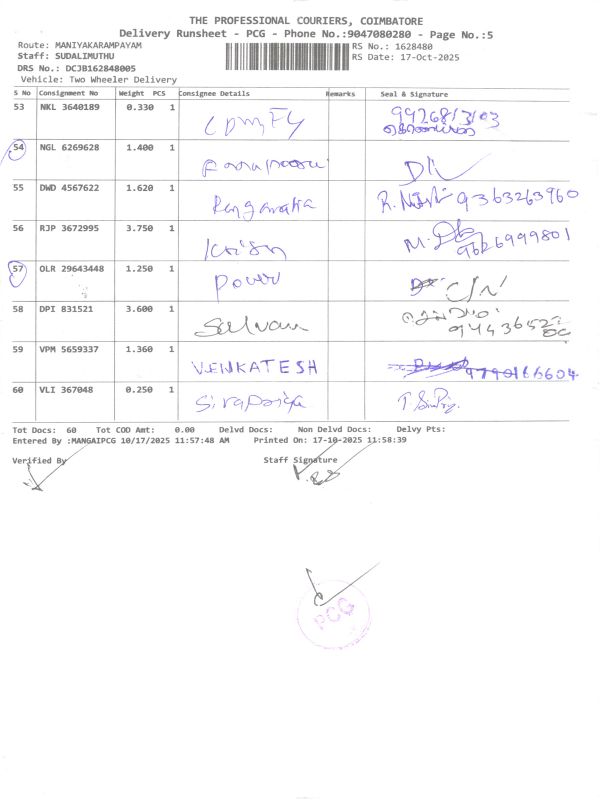 THE PROFESSIONAL COURIERS, COIMBATORE
Delivery Runsheet - PCG - Phone No.:9047080280 - Page No.:5
Route: MANIYAKARAMPAYAM RS No.: 1628480
Staff: SUDALIMUTHU RS Date: 17-Oct-2025
DRS No.: DCJB162848005
Vehicle: Two Wheeler Delivery
S No Consignment No Weight PCS Consignee Details Remarks Seal & Signature
53 NKL 3640189 0.330 1
54 NGL 6269628 1.400 1
55 DWD 4567622 1.620 1 9363263960
56 RJP 3672995 3.750 1 9626999801
57 OLR 29643448 1.250 1 power
58 DPI 831521 3.600 1 Selvam
59 VPM 5659337 1.360 1 VENKATESH 9790166604
60 VLI 367048 0.250 1
Tot Docs: 60 Tot COD Amt: 0.00 Delvd Docs: Non Delvd Docs: Delvy Pts:
Entered By :MANGAIPCG 10/17/2025 11:57:48 AM Printed On: 17-10-2025 11:58:39
Verified By Staff Signature
PCG